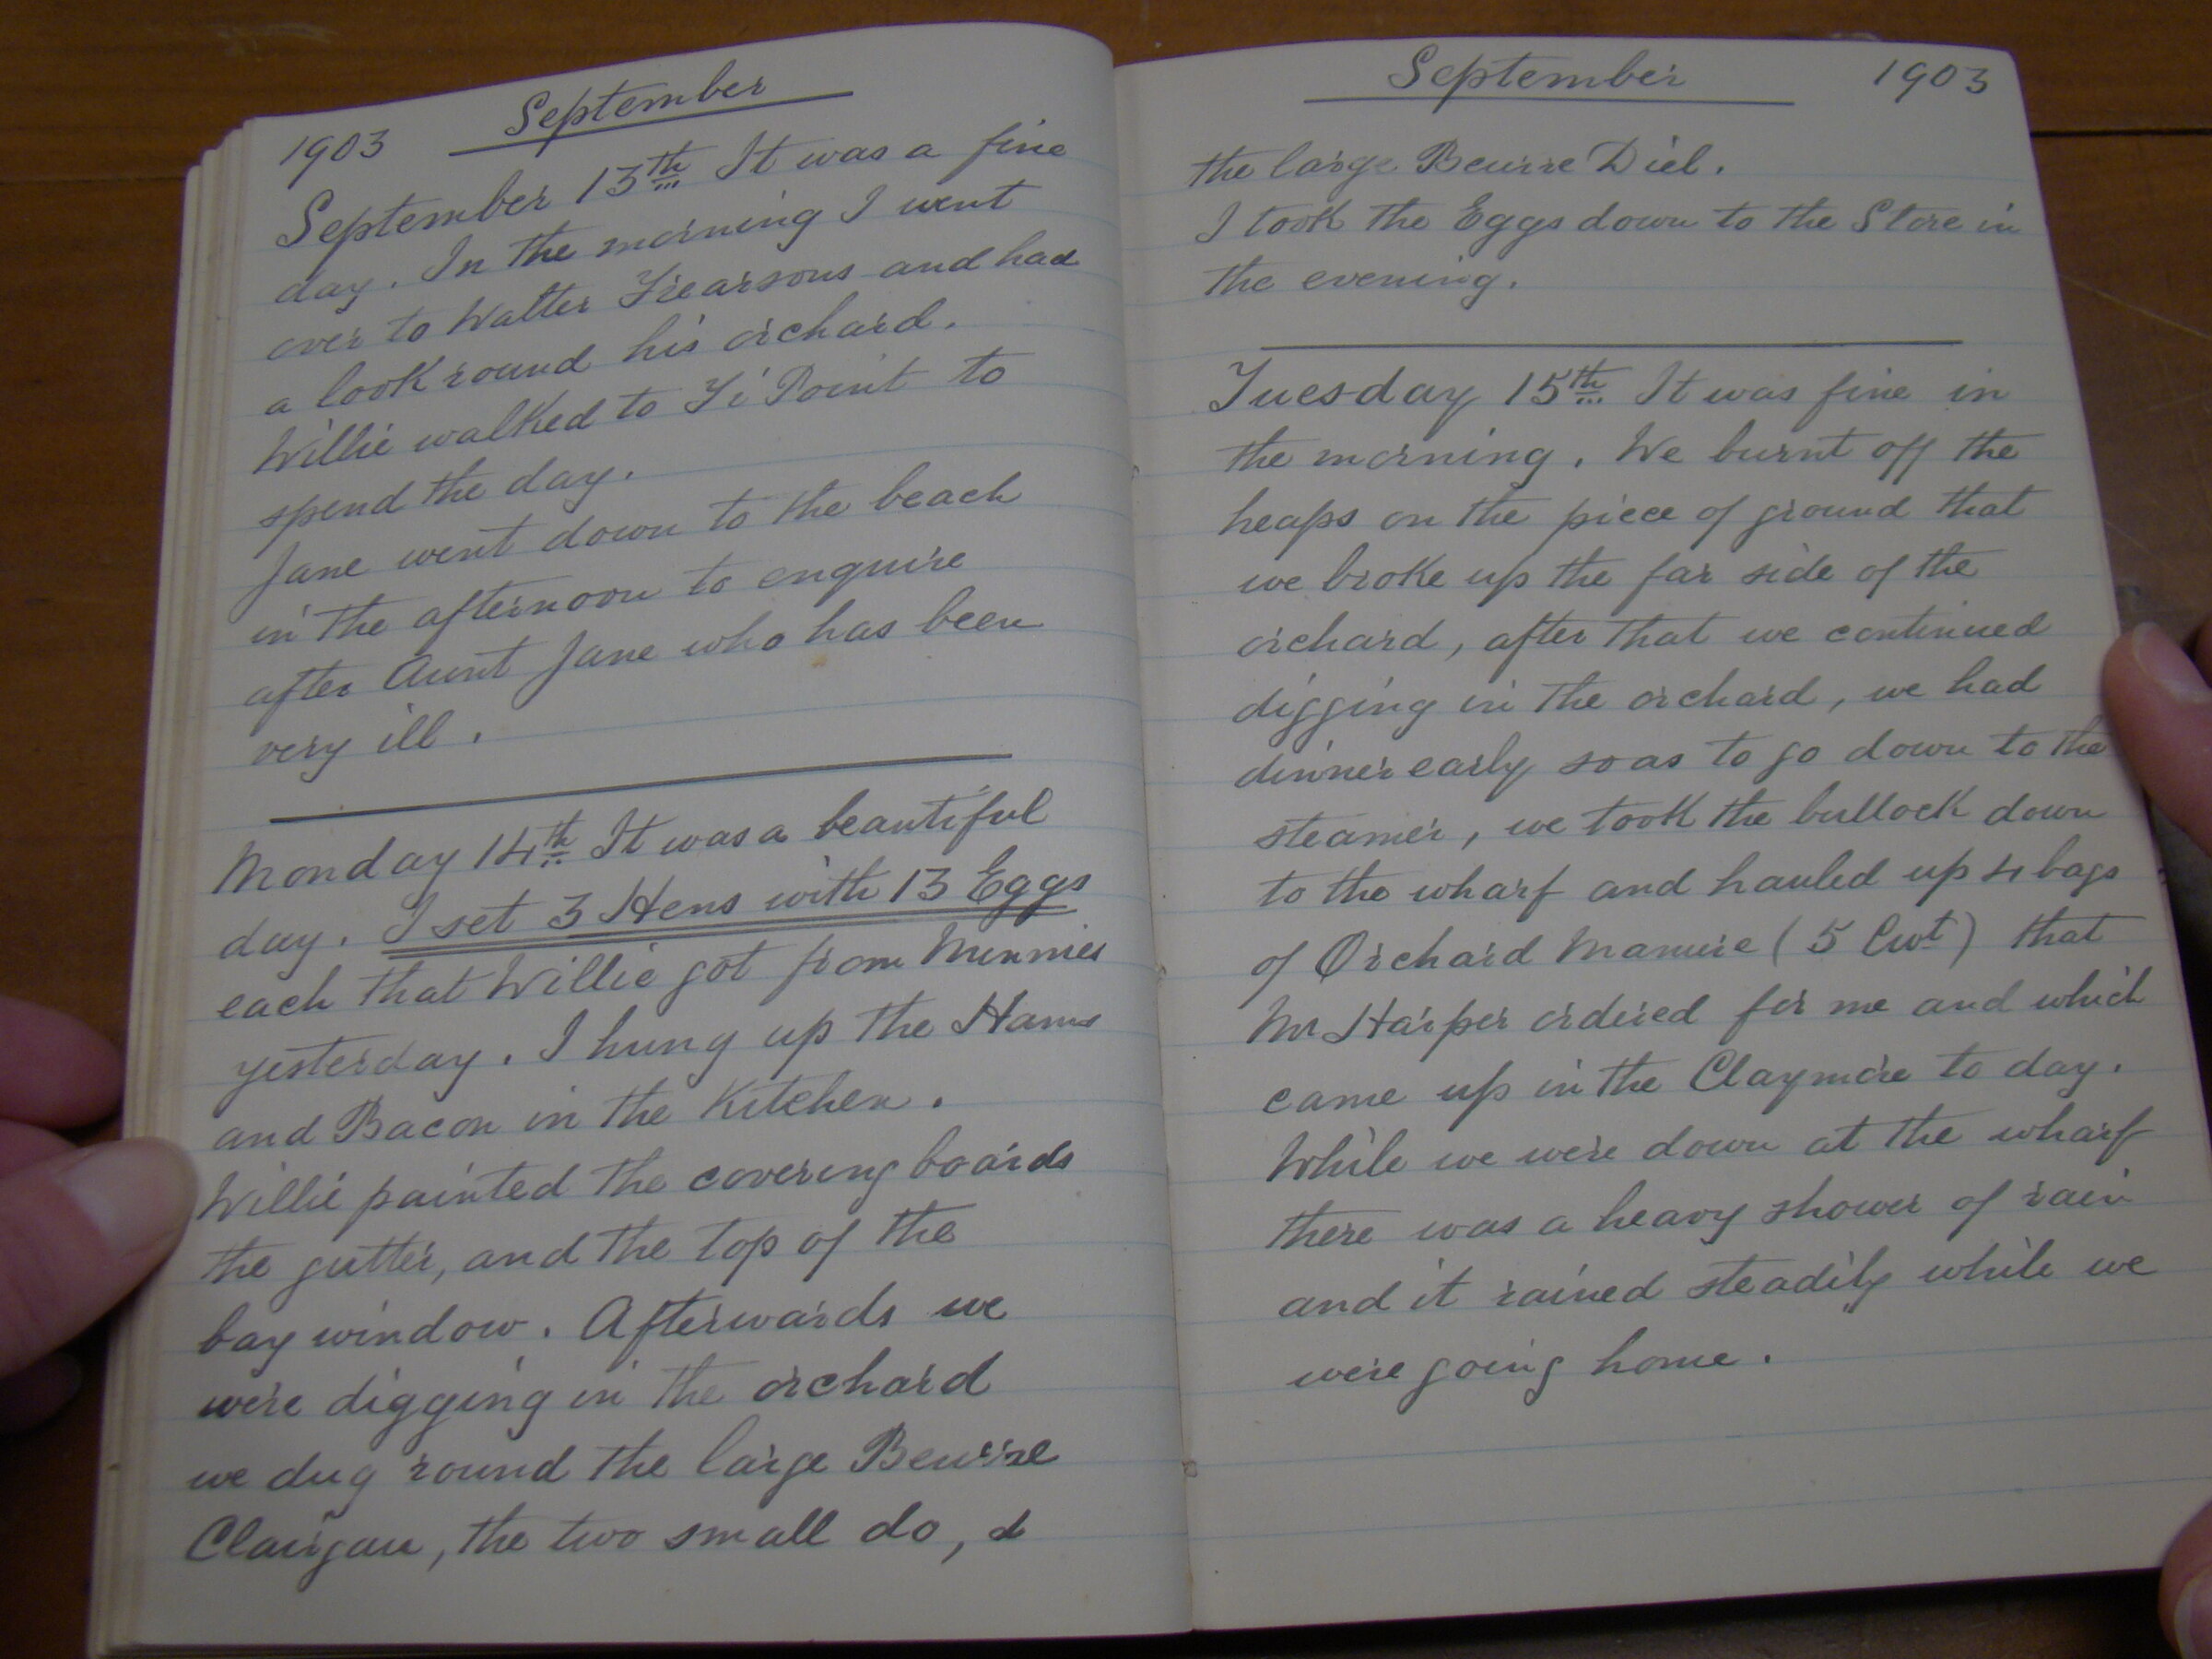 1903 September
September 13th It was a fine
day. In the morning I went
over to Walter Frearsons and had
a look round his orchard.
Willie walked to Ti Point to
spend the day.
Jane went down to the beach
in the afternoon to enquire
after Aunt Jane who has been
very ill.
Monday 14th It was a beautiful
day. I set 3 Hens with 13 Eggs
each that Willie got from Minnies
yesterday. I hung up the Hams
and Bacon in the Kitchen.
Willie painted the covering boards
the gutter, and the top of the
bay window. Afterwards we
were digging in the orchard
we dug round the large Beurre
Clairgau, the two small do, &
September 1903
the large Beurre Diel.
I took the Eggs down to the Store in
the evening.
Tuesday 15th It was fine in
the morning. We burnt off the
heaps on the piece of ground that
we broke up the far side of the
orchard, after that we continued
digging in the orchard, we had
dinner early so as to go down to the
steamer, we took the bullock down
to the wharf and hauled up 4 bags
of Orchard Manure (5 Cwt) that
Mr Harper ordered for me and which
came up in the Claymore to day.
While we were down at the wharf
there was a heavy shower of rain
and it rained steadily while we
were going home.